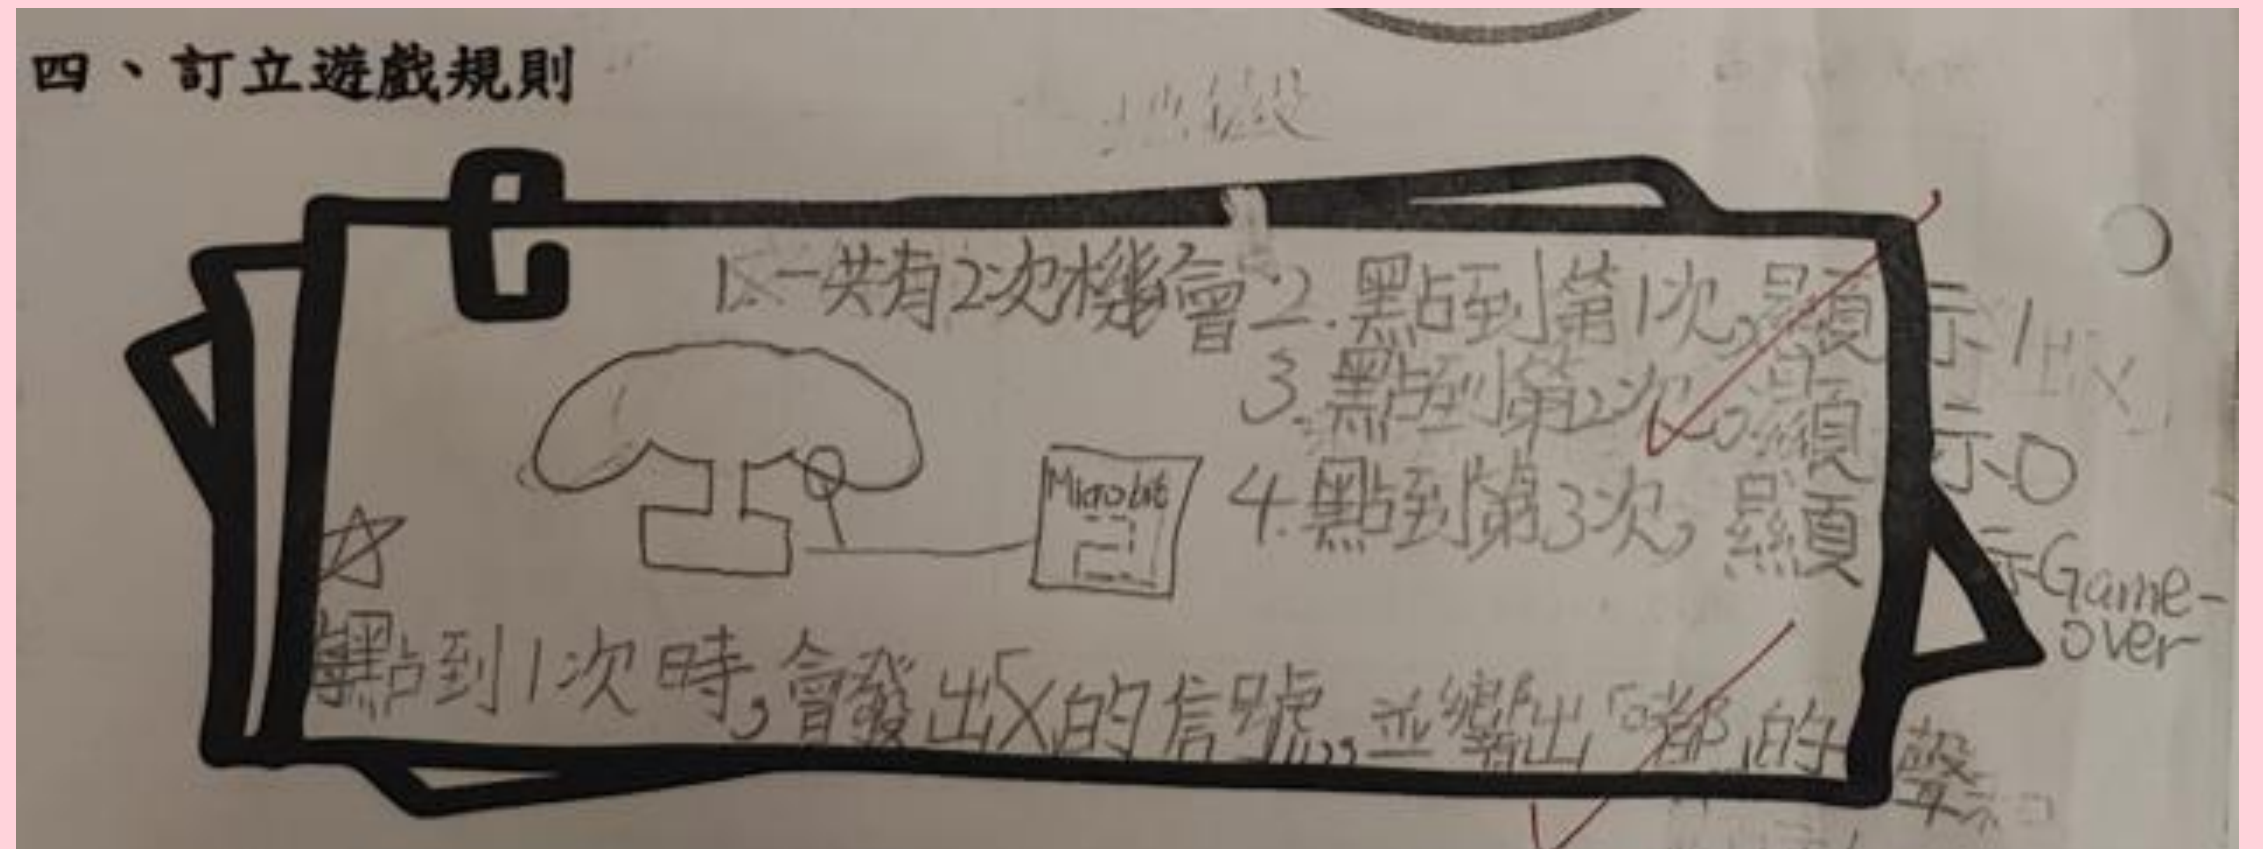 四、訂立遊戲規則
1.一共有2次機會
2.點到第1次,顯示1
3.點到第2次,顯示0
4.點到第3次,顯示Game-
over
Microbit
☆
點到1次時,會發出「X的信號」,並響出「嘟」的聲